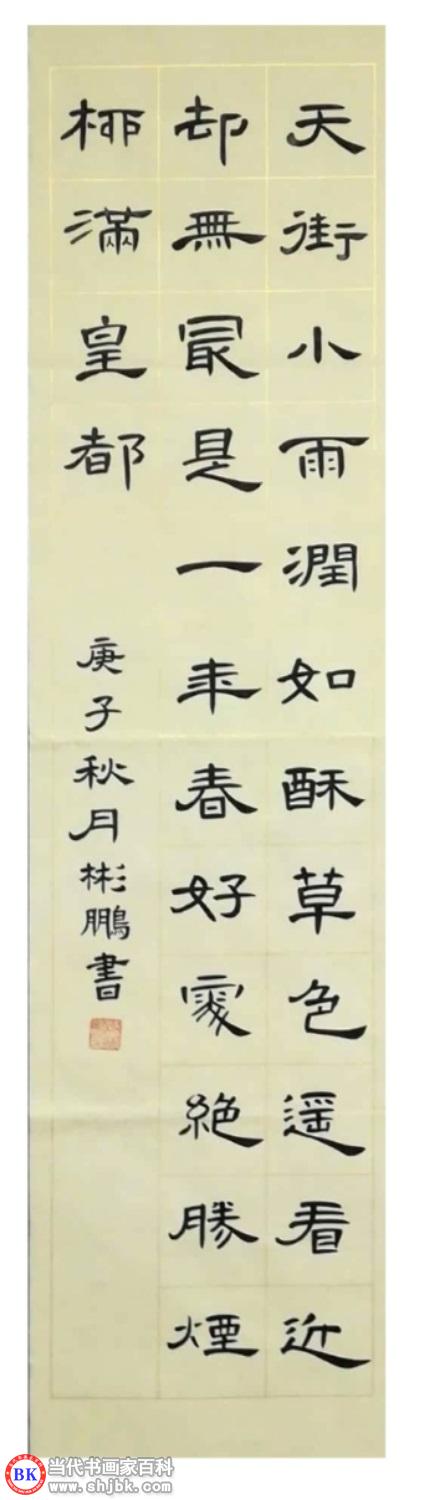 天街小雨潤如酥草色遥看近
却無最是一年春好處絶勝煙
柳滿皇都
庚子秋月彬鵬書
BK
当代书画家百科
www.shjbk.com